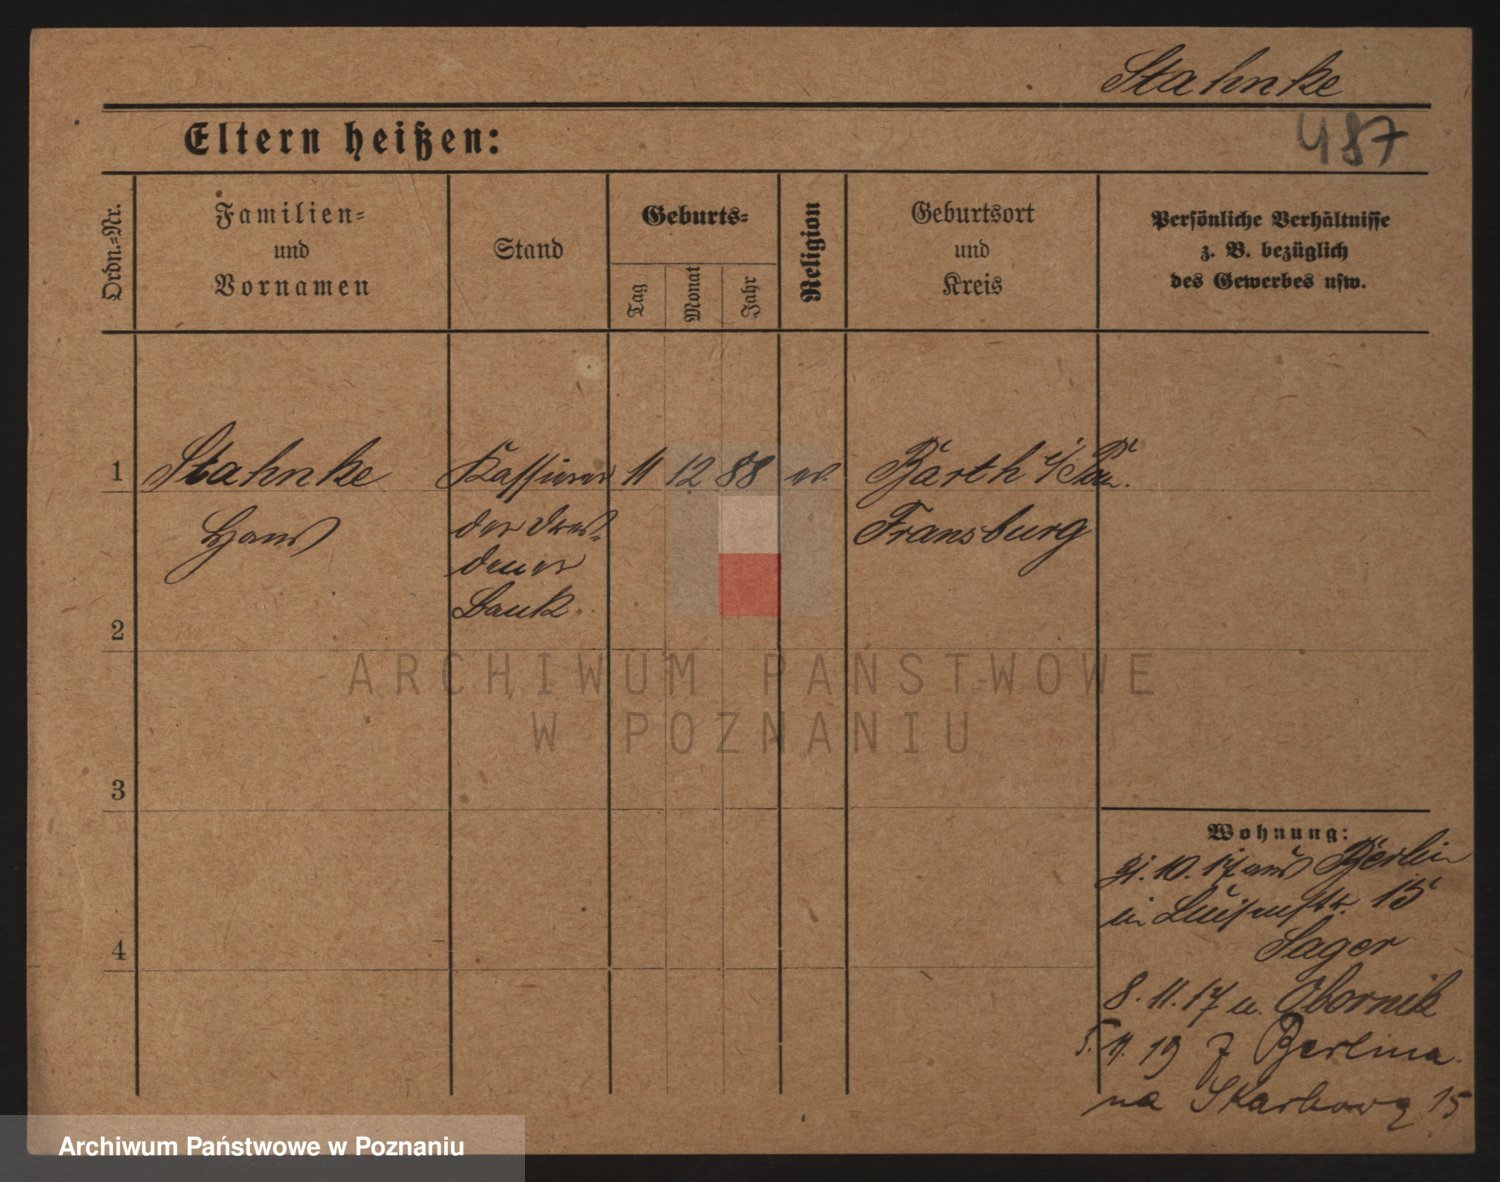 Stahnke
487
Eltern heißen:
Ordn.=Nr.
Familien=
und
Vornamen
Stand
Geburts=
Tag
Monat
Jahr
Religion
Geburtsort
und
Kreis
Persönliche Verhältnisse
z. B. bezüglich
des Gewerbes usw.
1 Stahnke Kassierer 11 12 88 ev. Barth i/Pom.
Hans der Dres= Fransburg
dener
Bank
2
ARCHIWUM PAŃSTWOWE
W POZNANIU
3
4
Wohnung:
31.10.17 aus Berlin
in Luisenstr. 15
Sager
8.11.17 n. Obornik
5. 4. 19 z Berlina
na Skarbową 15
Archiwum Państwowe w Poznaniu